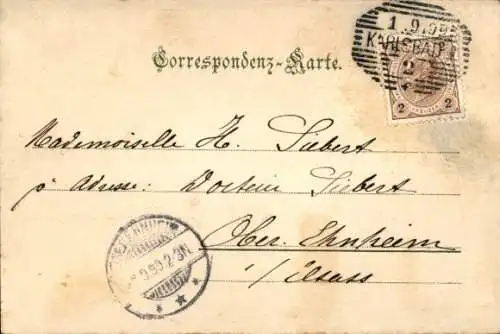 1 9 99
KARLSBAD
2
Correspondenz-Karte.
2 2
Mademoiselle H. Siebert
p. Adresse: Docteur Siebert
Ober. Ehnheim
i/Elsass
9.99.2-3N